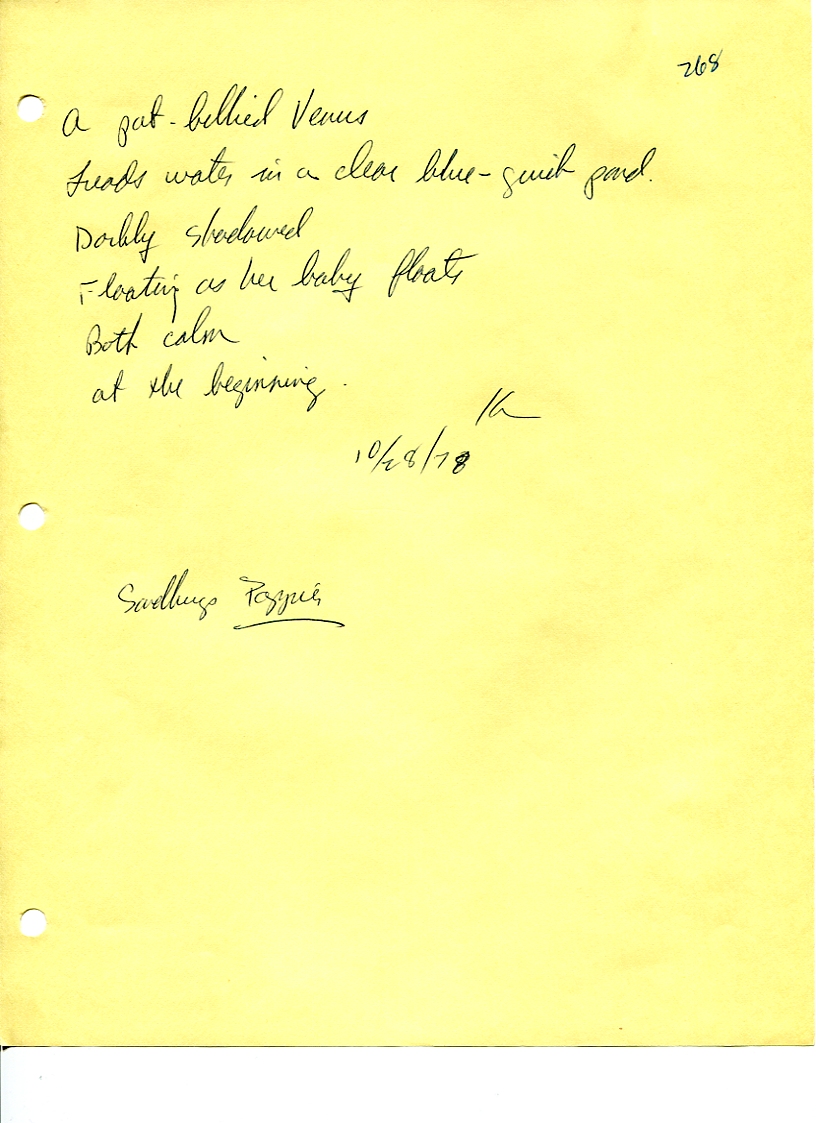 268
A pot-bellied Venus
treads water in a clear blue-quick pond.
Darkly shadowed
Floating as her baby floats
Both calm
at the beginning.
10/28/78